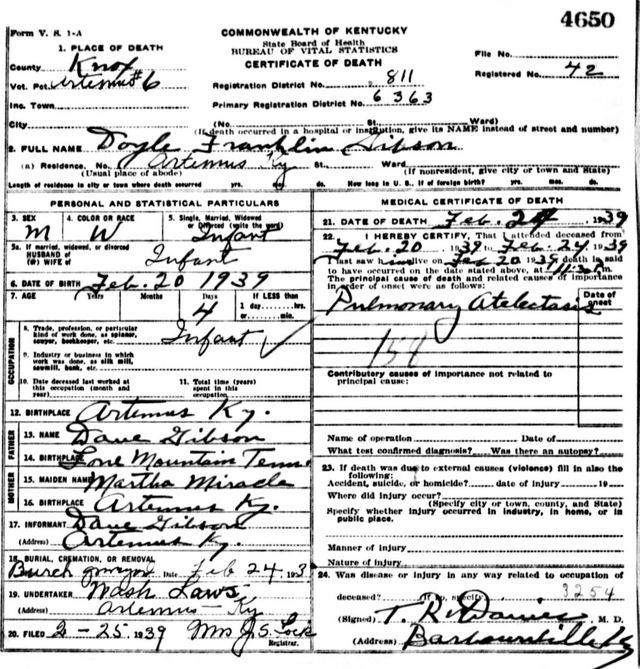 4650
Form V. S. 1-A
COMMONWEALTH OF KENTUCKY
State Board of Health
BUREAU OF VITAL STATISTICS
CERTIFICATE OF DEATH
1. PLACE OF DEATH
County Knox
Vot. Pct. Artemus #6
Inc. Town
Registration District No. 811
Primary Registration District No. 6363
File No.
Registered No. 42
City (No. St. Ward)
(If death occurred in a hospital or institution, give its NAME instead of street and number)
2. FULL NAME Doyle Franklin Gibson
(a) Residence. No. Artemus Ky St. Ward
(Usual place of abode) (If nonresident, give city or town and State)
Length of residence in city or town where death occurred yrs. mos. ds. How long in U. S., if of foreign birth? yrs. mos. ds.
PERSONAL AND STATISTICAL PARTICULARS
3. SEX M
4. COLOR OR RACE W
5. Single, Married, Widowed or Divorced (write the word) Infant
5a. If married, widowed, or divorced
HUSBAND of
(or) WIFE of Infant
6. DATE OF BIRTH Feb. 20 1939
7. AGE Years Months Days 4 If LESS than 1 day hrs. or min.
OCCUPATION
8. Trade, profession, or particular kind of work done, as spinner, sawyer, bookkeeper, etc. Infant ✓
9. Industry or business in which work was done, as silk mill, sawmill, bank, etc.
10. Date deceased last worked at this occupation (month and year)
11. Total time (years) spent in this occupation
12. BIRTHPLACE Artemus Ky.
FATHER
13. NAME Dave Gibson
14. BIRTHPLACE Lone Mountain Tenn
MOTHER
15. MAIDEN NAME Martha Miracle
16. BIRTHPLACE Artemus Ky.
17. INFORMANT Dave Gibson
(Address) Artemus Ky.
18. BURIAL, CREMATION, OR REMOVAL
Burch Date Feb 24, 193
19. UNDERTAKER Wash Laws
Artemus Ky
20. FILED 2-25-1939 Mrs J. S. Lock
Registrar.
MEDICAL CERTIFICATE OF DEATH
21. DATE OF DEATH Feb. 24, 1939
22. I HEREBY CERTIFY, That I attended deceased from
Feb. 20, 1939 to Feb. 24, 1939
I last saw him alive on Feb 20 1939 death is said
to have occurred on the date stated above, at 11:30 P.m.
The principal cause of death and related causes of importance in order of onset were as follows:
Date of onset
Pulmonary Atelectasis
158
Contributory causes of importance not related to principal cause:
Name of operation Date of
What test confirmed diagnosis? Was there an autopsy?
23. If death was due to external causes (violence) fill in also the following:
Accident, suicide, or homicide? date of injury 19
Where did injury occur?
(Specify city or town, county, and State)
Specify whether injury occurred in industry, in home, or in public place.
Manner of injury
Nature of injury
24. Was disease or injury in any way related to occupation of
deceased? If so, specify 3254
(Signed) T. R. Davies, M. D.
(Address) Barbourville Ky